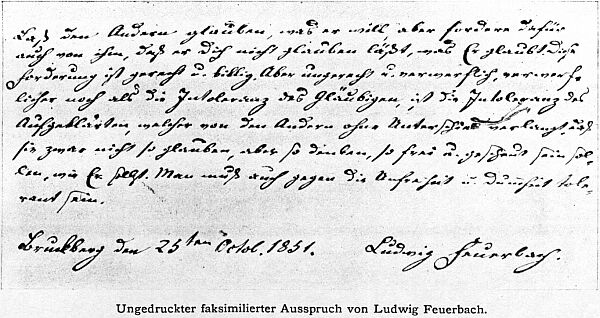 Laß den Andern glauben, was er will, aber fordere dafür
auch von ihm, daß er dich nicht glauben läßt, was Er glaubt. Diese
Forderung ist gerecht u. billig. Aber ungerecht u. verwerflich, verwerf-
licher noch als die Intoleranz des Gläubigen, ist die Intoleranz des
Aufgeklärten, welcher von den Andern ohne Unterschied verlangt, daß
sie zwar nicht so glauben, aber so denken, so frei u. gescheut sein sol-
len, wie Er selbst. Man muß auch gegen die Unfreiheit u. Dummheit tole-
rant sein.
Bruckberg den 25ten Octob. 1851. Ludwig Feuerbach.
Ungedruckter faksimilierter Ausspruch von Ludwig Feuerbach.